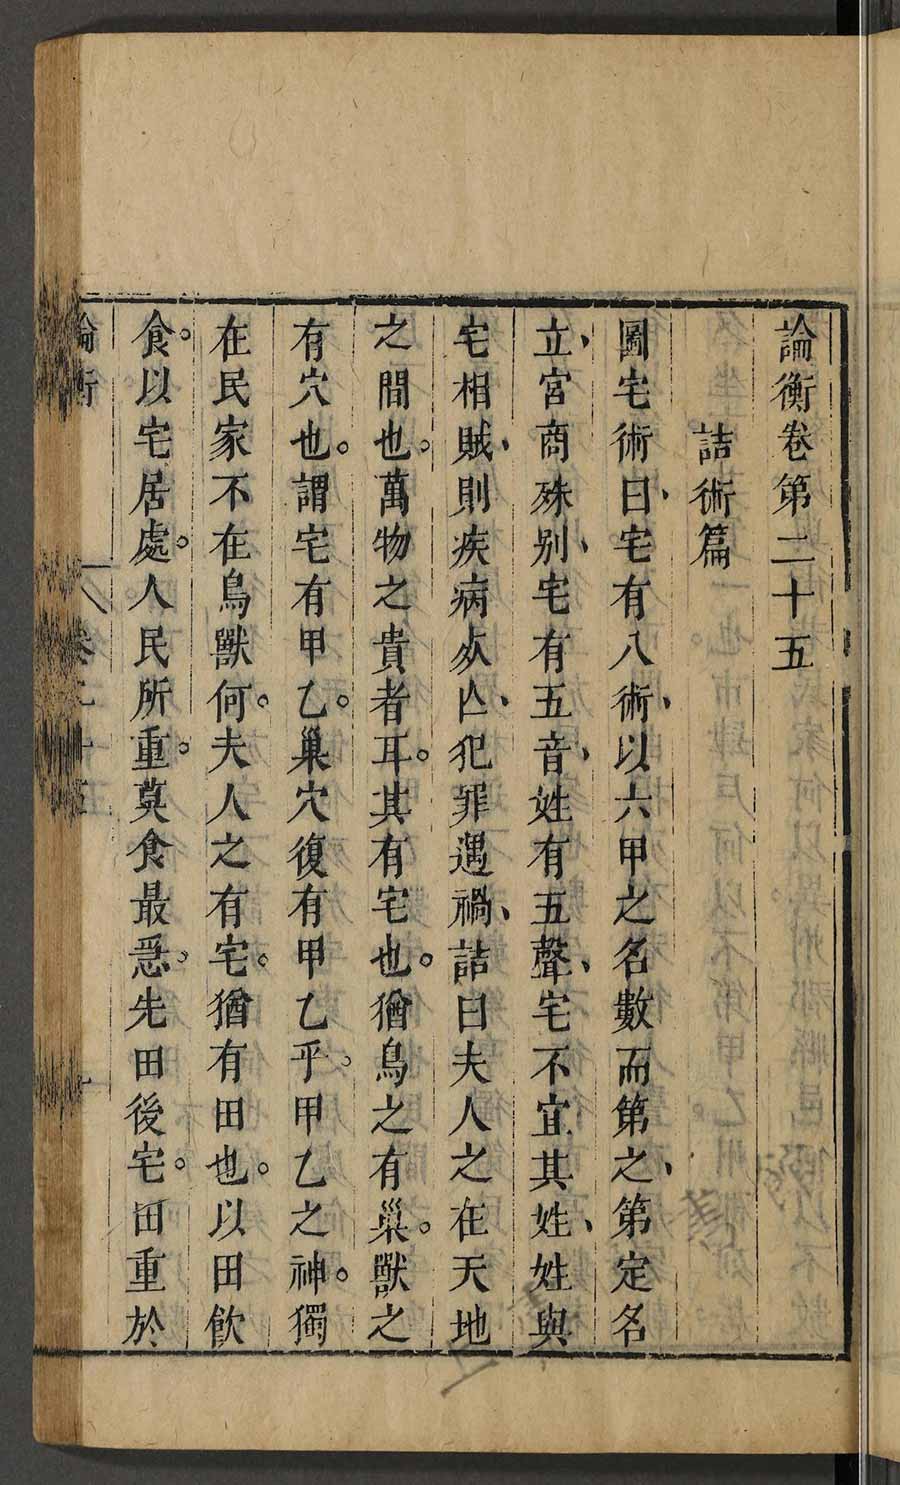 論衡卷第二十五
詰術篇
圖宅術曰、宅有八術、以六甲之名數而第之、第定名
立、宮商殊别、宅有五音、姓有五聲、宅不宜其姓、姓與
宅相賊、則疾病死亾、犯罪遇禍、詰曰夫人之在天地
之間也。萬物之貴者耳。其有宅也。猶鳥之有巢。獸之
有穴也。謂宅有甲乙。巢穴復有甲乙乎。甲乙之神。獨
在民家不在鳥獸何。夫人之有宅。猶有田也。以田飲
食。以宅居處。人民所重。莫食最急。先田後宅。田重於
論衡 卷二十五